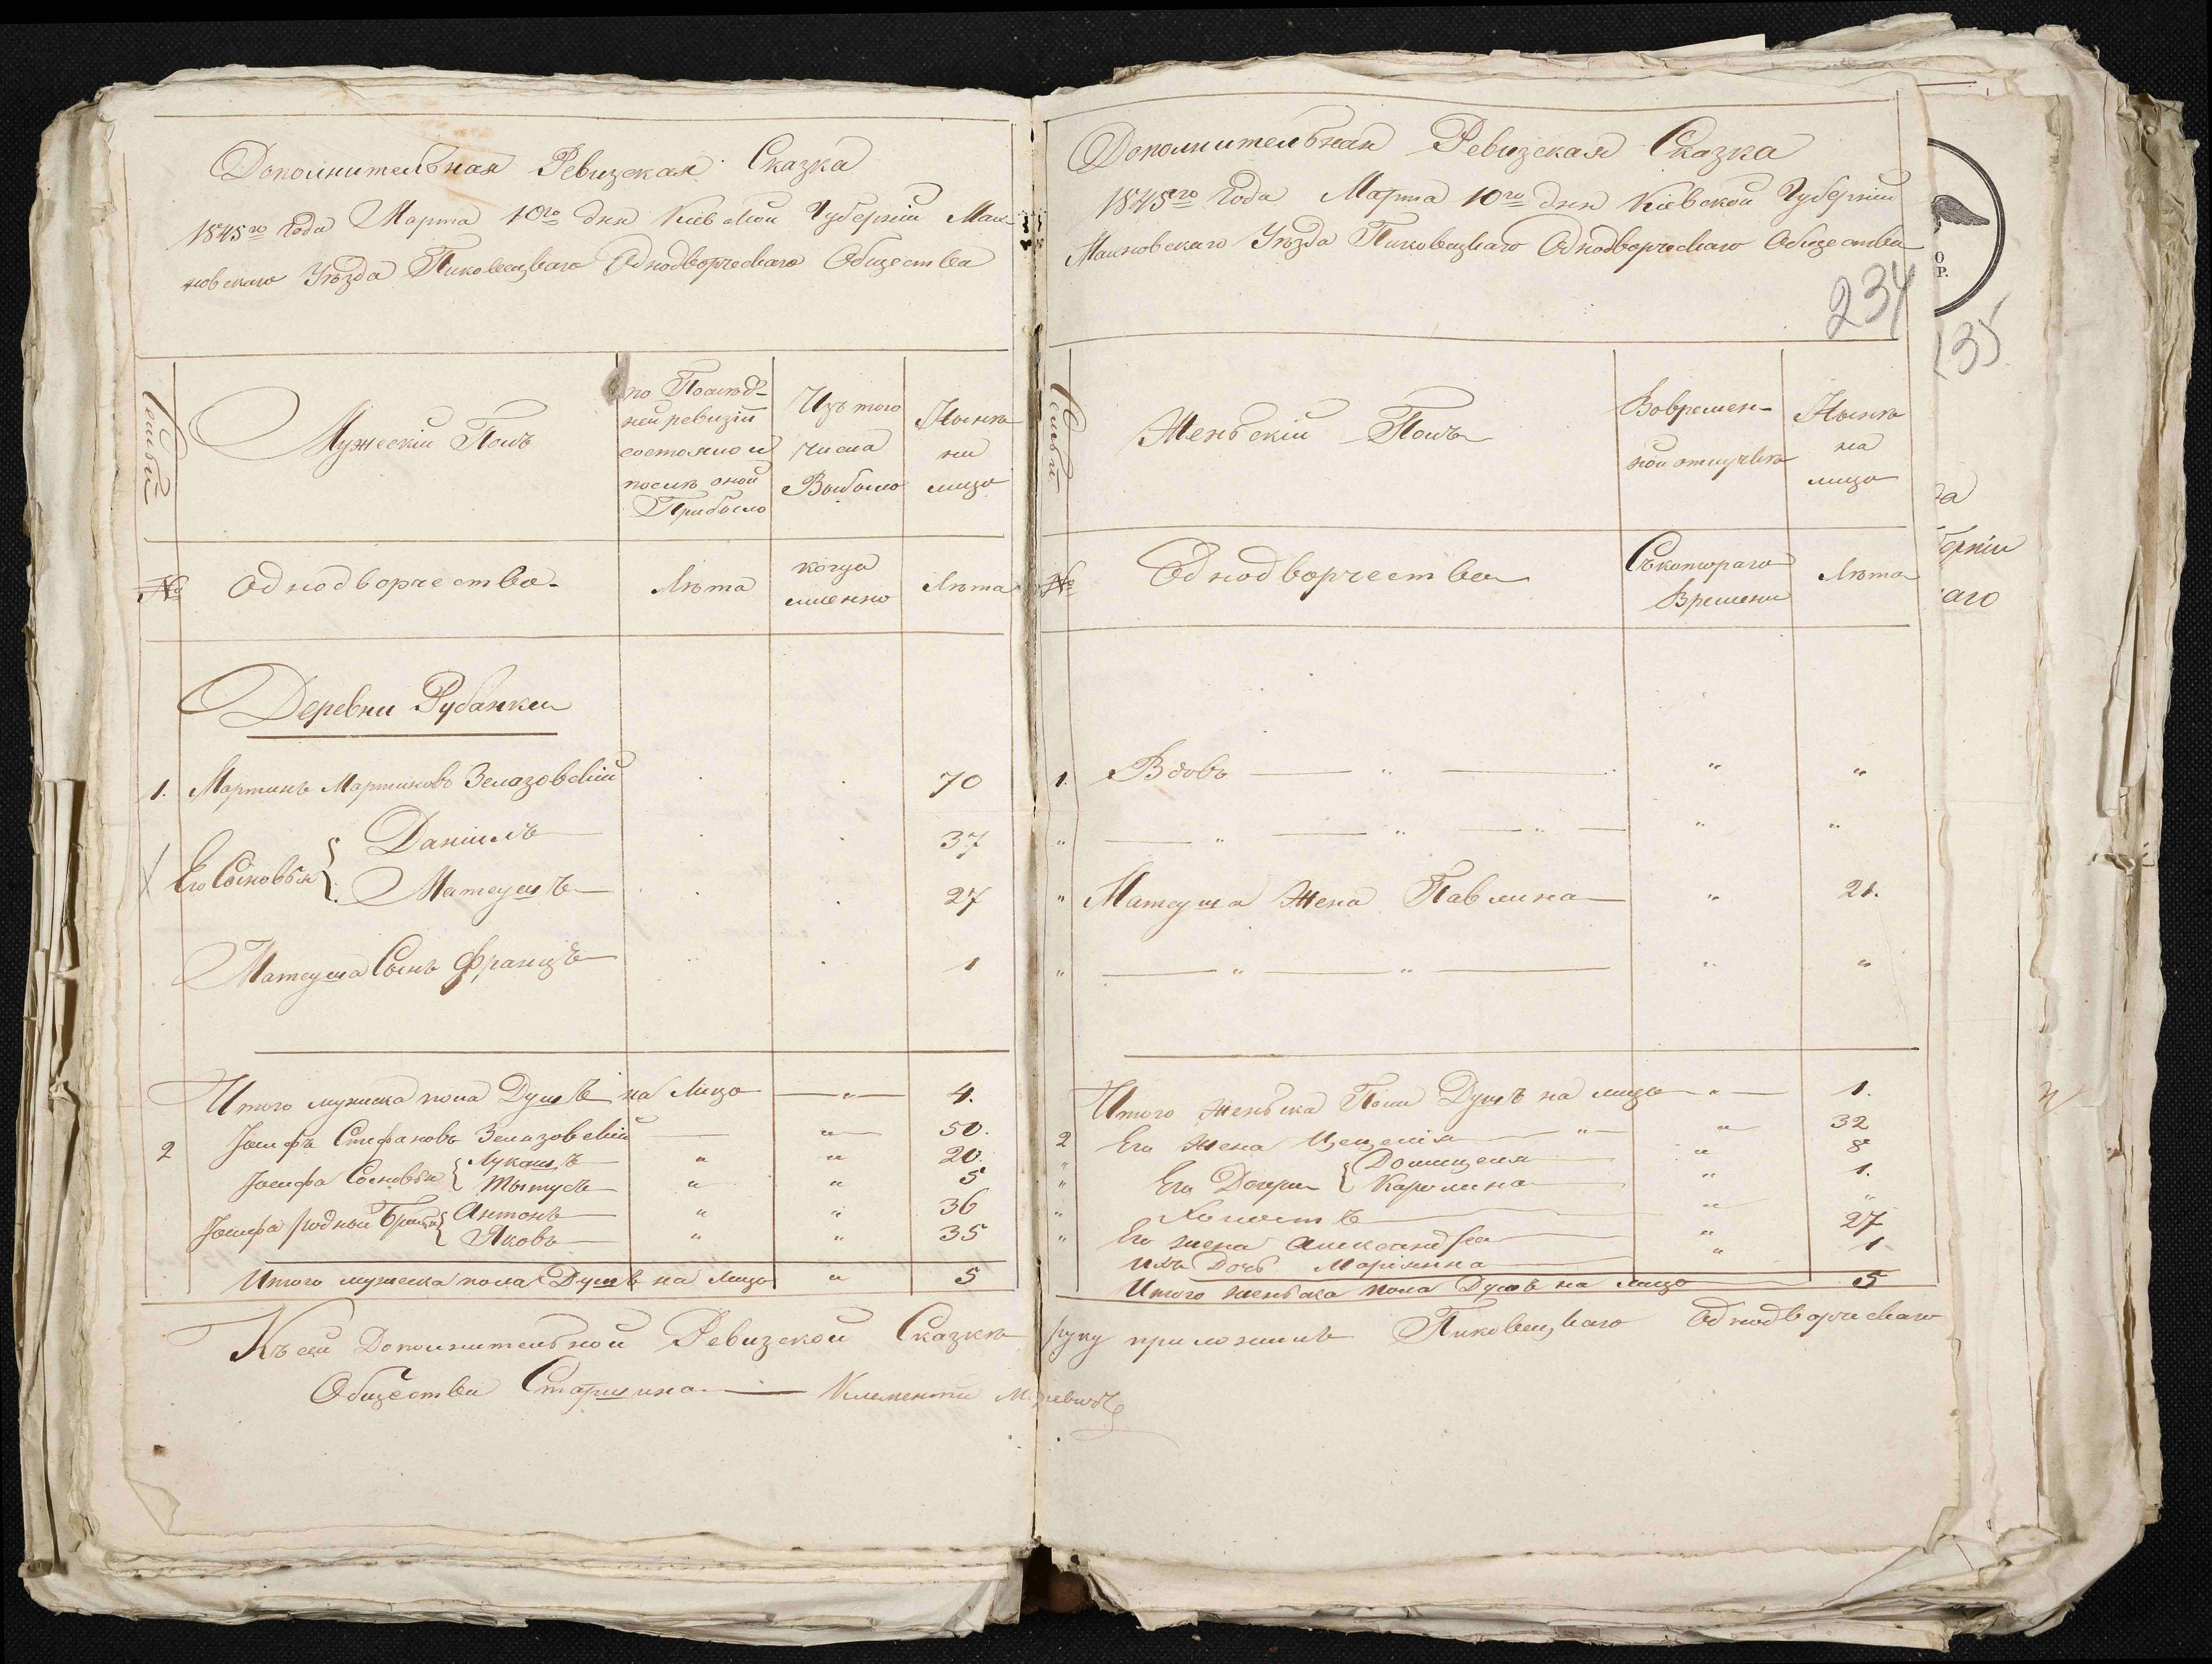 Дополнительная Ревизская Сказка
1845го Года Марта 10го дня Кіевской Губерніи Маи-
новскаго Уѣзда Пиковецкаго Однодворческаго Общества
Семьи
Мужескій Полъ
по Послѣд-
ней ревизіи
состояло и
послѣ оной
Прибыло
Изъ того
числа
Выбыло
Нынѣ
на
лицо
№
Однодворчества.
Лѣта
когда
именно
Лѣта
Деревни Рубанки
1. Мартинъ Мартиновъ Зелазовскій 70
Его Сыновья { Даніилъ 37
Матеушъ 27
Матеуша Сынъ Францъ 1
Итого мужеска пола Душъ на Лицо — " — 4.
2 Іосифъ Стефановъ Зелазовскій — " — 50.
Іосифа Сыновья { Лукашъ " " 20.
Мытусъ " " 5
Іосифа родной Братья { Антонъ " " 36
Яковъ " " 35
Итого мужеска пола Душъ на Лицо " 5
Дополнительная Ревизская Сказка
1845го Года Марта 10го дня Кіевской Губерніи
Уѣзда Пиковецкаго Однодворческаго Общества
234
Семьи
Женьскій Полъ
Вовремен-
ной отлучкѣ
Нынѣ
на
лицо
№
Однодворчества
Съкотораго
Времени
Лѣта
1. Вдовъ — " — " "
" — " — " — " — " "
" Матеуша Жена Павлина — " 21.
" — " — " — " "
Итого Женьска Пола Душъ на лицо — " — 1.
2 Его Жена Цецелія — " — " 32
" Его Дочери { Домицеля " 8
" Каролина " 1.
" Холостъ " "
" Его жена Александра " 27
ихъ Дочь Маріянна " 1
Итого женьска пола Душъ на лицо 5
Къ сей Дополнительной Ревизской Сказкѣ руку приложилъ Пиковецкаго Однодворческаго
Общества Старшина — Климентій
О
Р.
135
а
берніи
аго